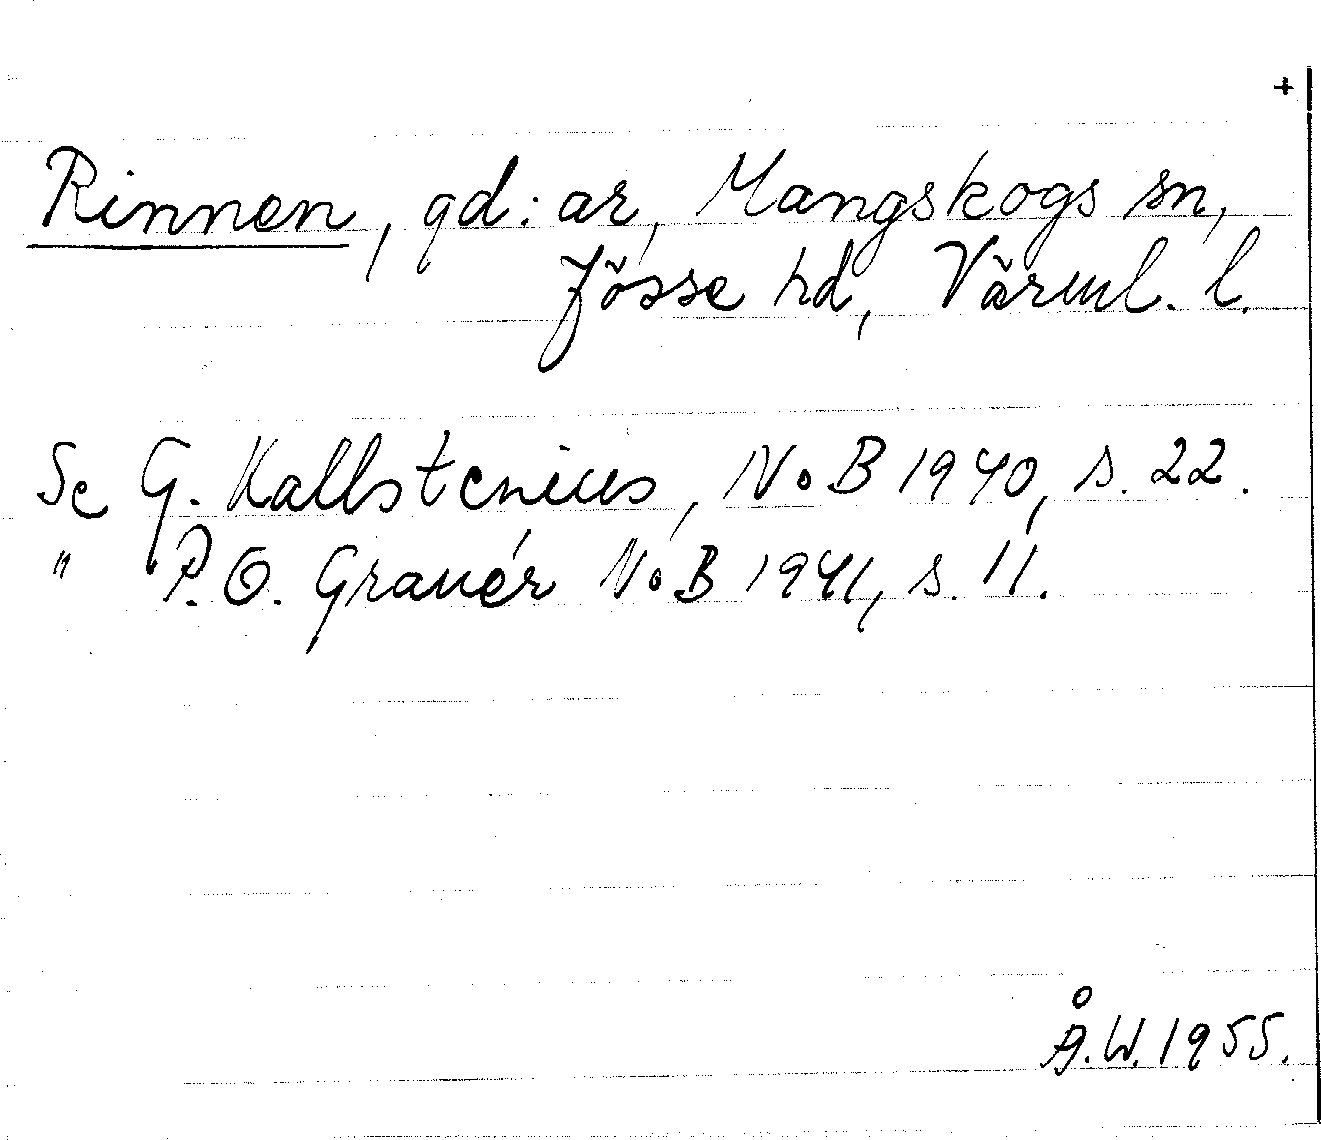 +
Rinnen, gd:ar, Mangskogs sn,
Jösse hd, Värml. l.
Se G. Kallstenius, NoB 1940, s. 22.
" P.O. Granér NoB 1941, s. 11.
Å.W. 1955.